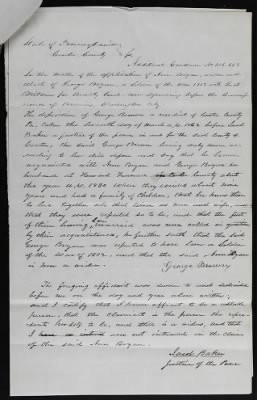 State of Pennsylvania
Centre County
Additional Evidence No 216.868
In the matter of the application of Ann Bryan, widow and
of George Bryan, a Soldier of the War 1812 with Great
Britain for Bounty Land now depending before the Commis-
sioner of Pensions, Washington City.
The deposition of George Brewer a resident of Centre County
before Jacob
Baker a Justice of the peace in and for the said County of
Centre, the said George Brewer being duly sworn ac-
cording to law doth depose and say that he became
acquainted with Ann Bryan and George Bryan her
husband at Howard Furnace Centre County about
the year A.D. 1830 where they resided about
years and had a family of Children, that he knew them
to live together all that time as man and wife, and
that they were reputed so to be, and that the fact
of their having been married was never called in question
by their acquaintances, he further saith that the said
George Bryan was reputed to have been a Soldier
of the War of 1812, and that the said Ann Bryan
is now a widow.
George Brewer
The foregoing affidavit was sworn to and subscribed
before me on the day and year above written,
and I certify that I know affiant to be a credible
person, that the claimant is the person she repre-
sents herself to be, and that is a widow, and that
I am not interested in the claim
of the said Ann Bryan.
Jacob Baker
Justice of the Peace